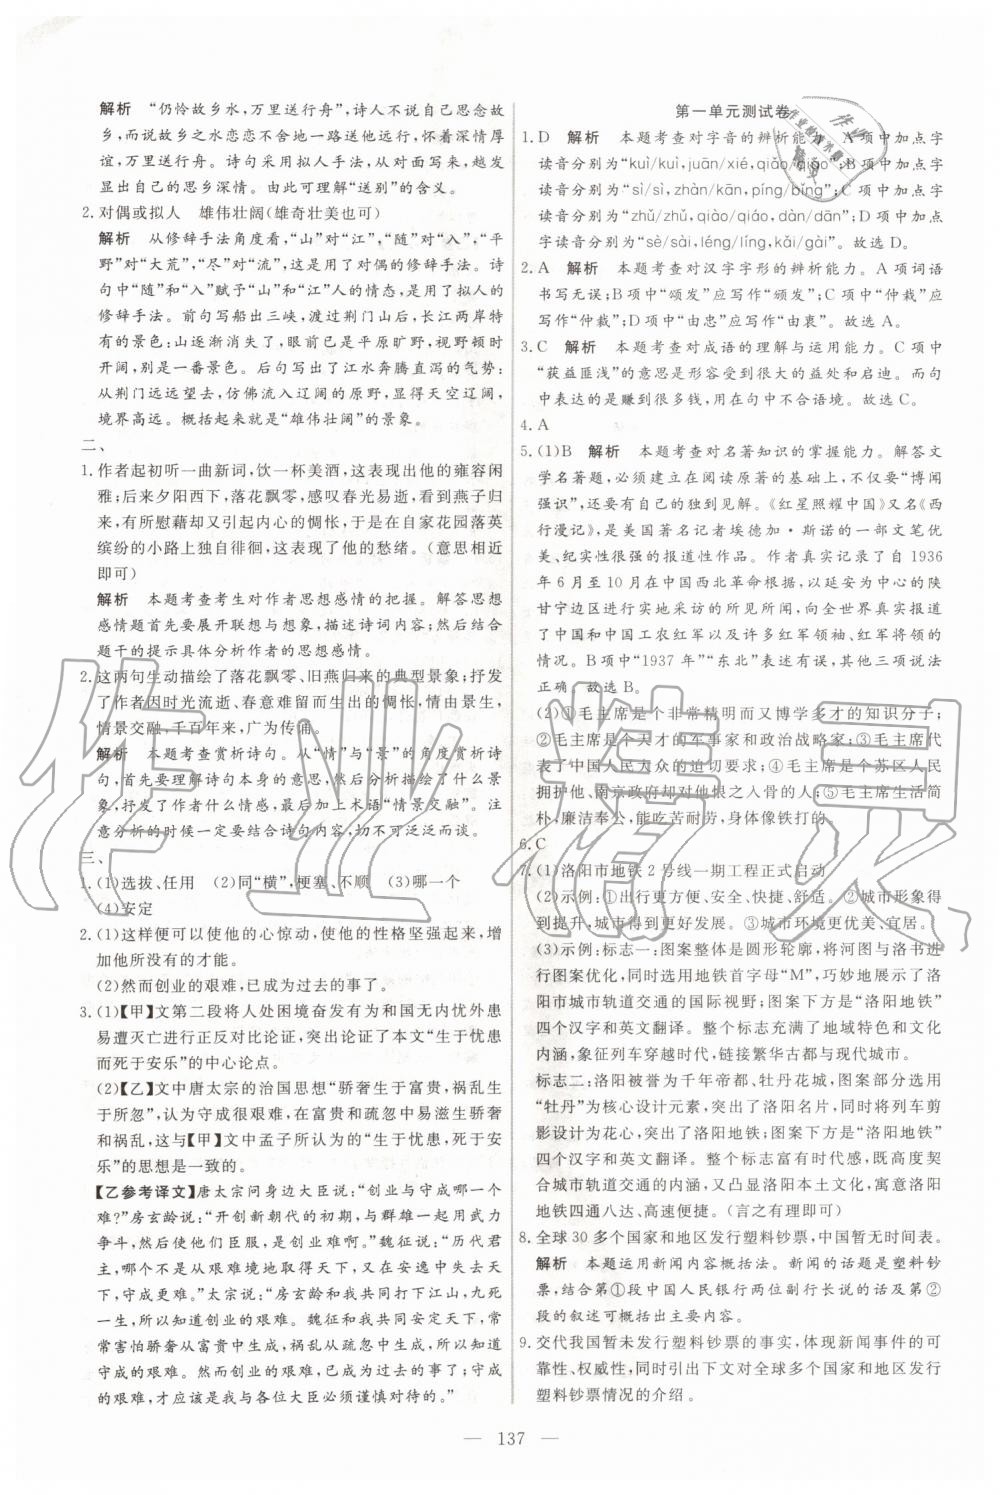 解析 “仍怜故乡水,万里送行舟”,诗人不说自己思念故
乡,而说故乡之水恋恋不舍地一路送他远行,怀着深情厚
谊,万里送行舟。诗句采用拟人手法,从对面来写,越发
显出自己的思乡深情。由此可理解“送别”的含义。
2. 对偶或拟人 雄伟壮阔(雄奇壮美也可)
解析 从修辞手法角度看,“山”对“江”,“随”对“入”,“平
野”对“大荒”,“尽”对“流”,这是用了对偶的修辞手法。诗
句中“随”和“入”赋予“山”和“江”人的情态,是用了拟人
的修辞手法。前句写船出三峡,渡过荆门山后,长江两岸特
有的景色:山逐渐消失了,眼前是平原旷野,视野顿时
开阔,别是一番景色。后句写出了江水奔腾直泻的气势:
从荆门远远望去,仿佛流入辽阔的原野,显得天空辽阔,
境界高远。概括起来就是“雄伟壮阔”的景象。
二、
1. 作者起初听一曲新词,饮一杯美酒,这表现出他的雍容闲
雅;后来夕阳西下,落花飘零,感叹春光易逝,看到燕子归来,
有所慰藉却又引起内心的惆怅,于是在自家花园落英
缤纷的小路上独自徘徊,这表现了他的愁绪。(意思相近
即可)
解析 本题考查考生对作者思想感情的把握。解答思想
感情题首先要展开联想与想象,描述诗词内容;然后结合
题干的提示具体分析作者的思想感情。
2. 这两句生动描绘了落花飘零、旧燕归来的典型景象;抒发
了作者因时光流逝、春意难留而生出的惆怅,情由景生,
情景交融,千百年来,广为传诵。
解析 本题考查赏析诗句。从“情”与“景”的角度赏析诗
句,首先要理解诗句本身的意思,然后分析描绘了什么景
象,抒发了作者什么感情,最后加上术语“情景交融”。注
意分析的时候一定要结合诗句内容,切不可泛泛而谈。
三、
1. (1)选拔、任用 (2)同“横”,梗塞、不顺 (3)哪一个
(4)安定
2. (1)这样便可以使他的心惊动,使他的性格坚强起来,增
加他所没有的才能。
(2)然而创业的艰难,已成为过去的事了。
3. (1)【甲】文第二段将人处困境奋发有为和国无内忧外患
易遭灭亡进行正反对比论证,突出论证了本文“生于忧患
而死于安乐”的中心论点。
(2)【乙】文中唐太宗的治国思想“骄奢生于富贵,祸乱生
于所忽”,认为守成很艰难,在富贵和疏忽中易滋生骄奢
和祸乱,这与【甲】文中孟子所认为的“生于忧患,死于安
乐”的思想是一致的。
【乙参考译文】唐太宗问身边大臣说:“创业与守成哪一个
难?”房玄龄说:“开创新朝代的初期,与群雄一起用武力
争斗,然后使他们臣服,是创业难啊!”魏征说:“历代君
主,没有不是从艰难境地得到天下,又在安逸中失去天下
的,所以守成更艰难。”太宗说:“房玄龄和我一起打下江山,出生
入死,所以知道创业的艰难。魏征与我共同安定天下,常
常害怕骄奢从富贵中生成,祸乱从疏忽中生成,所以知道
守成的艰难。然而创业的艰难,已成为过去的事了;守成
的艰难,才应该是我与各位大臣必须谨慎对待的。”
第一单元测试卷
1. D 解析 本题考查对字音的辨析能力。A项中加点字
读音分别为“kuì/kuì,juān/xié,qiǎo/qiǎo”;B项中加点字
读音分别为“sì/shì,zhàn/kān,píng/bǐng”;C项中加点
字读音分别为“zhǔ/zhǔ,qiào/qiáo,dàn/dān”;D项中加点
字读音分别为“sè/sài,léng/líng,kǎi/gài”。故选 D。
2. A 解析 本题考查对汉字字形的辨析能力。A项词语
书写无误;B项中“颂发”应写作“颁发”;C项中“仲裁”应
写作“仲裁”;D项中“由忠”应写作“由衷”。故选 A。
3. C 解析 本题考查对成语的理解与运用能力。C项中
“获益匪浅”的意思是形容受到很大的益处和启迪。而句
中表达的是赚到很多钱,用在句中不合语境。故选 C。
4. A
5. (1)B 解析 本题考查对名著知识的掌握能力。解答文
学名著题,必须建立在阅读原著的基础上,不仅要“博闻
强识”,还要有自己的独到见解。《红星照耀中国》又名《西
行漫记》,是美国著名记者埃德加·斯诺的一部文笔优
美、纪实性很强的报道性作品。作者真实记录了自 1936
年 6 月至 10 月在中国西北革命根据地以延安为中心的陕
甘宁边区进行实地采访的所见所闻,向全世界真实报道
了中国和中国工农红军以及许多红军领袖、红军将领的
情况。B项中“1937 年”“东北”表述有误,其他三项说法
正确。故选 B。
(2)①毛主席是个非常精明而又博学多才的知识分子;
②毛主席是个天才的军事家和政治战略家;③毛主席代
表了中国人民大众的迫切要求;④毛主席是个苏区人民
拥护他、南京政府却对他恨之入骨的人;⑤毛主席生活简
朴,廉洁奉公,能吃苦耐劳,身体像铁打的。
6. C
7. (1)洛阳市地铁 2 号线一期工程正式启动
(2)示例:①出行更方便、安全、快捷、舒适。②城市形象得
到提升,城市得到更好发展。③城市环境更优美、宜居。
(3)示例:标志一:图案整体是圆形轮廓,将河图与洛书进
行图案优化,同时选用地铁首字母“M”,巧妙地展示了洛
阳市城市轨道交通的国际视野;图案下方设计“洛阳地铁”
四个汉字和英文翻译。整个标志充满了地域特色和文化
内涵,象征列车穿越时代,链接繁华古都与现代城市。
标志二:洛阳被誉为千年帝都、牡丹花城,图案选用
“牡丹”为核心设计元素,突出了洛阳名片,将列车剪
影设计为花蕊,突出了洛阳地铁;图案下方设计“洛阳地铁”
四个汉字和英文翻译。整个标志既富有时代感,又传承
城市文脉,又凸显洛阳本土文化,寓意洛阳
地铁四通八达、高速便捷。(言之有理即可)
8. 全球 30 多个国家和地区发行塑料钞票,中国暂无时间表。
解析 本题运用新闻内容概括法。新闻的话题是塑料钞
票,结合第①段中国人民银行两位副行长说的话及第②
段的叙述可概括出主要内容。
9. 交代我国暂未发行塑料钞票的事实,体现新闻事件的可
靠性、权威性,同时引出下文对全球多个国家和地区发行
塑料钞票情况的介绍。
— 137 —
作业精灵